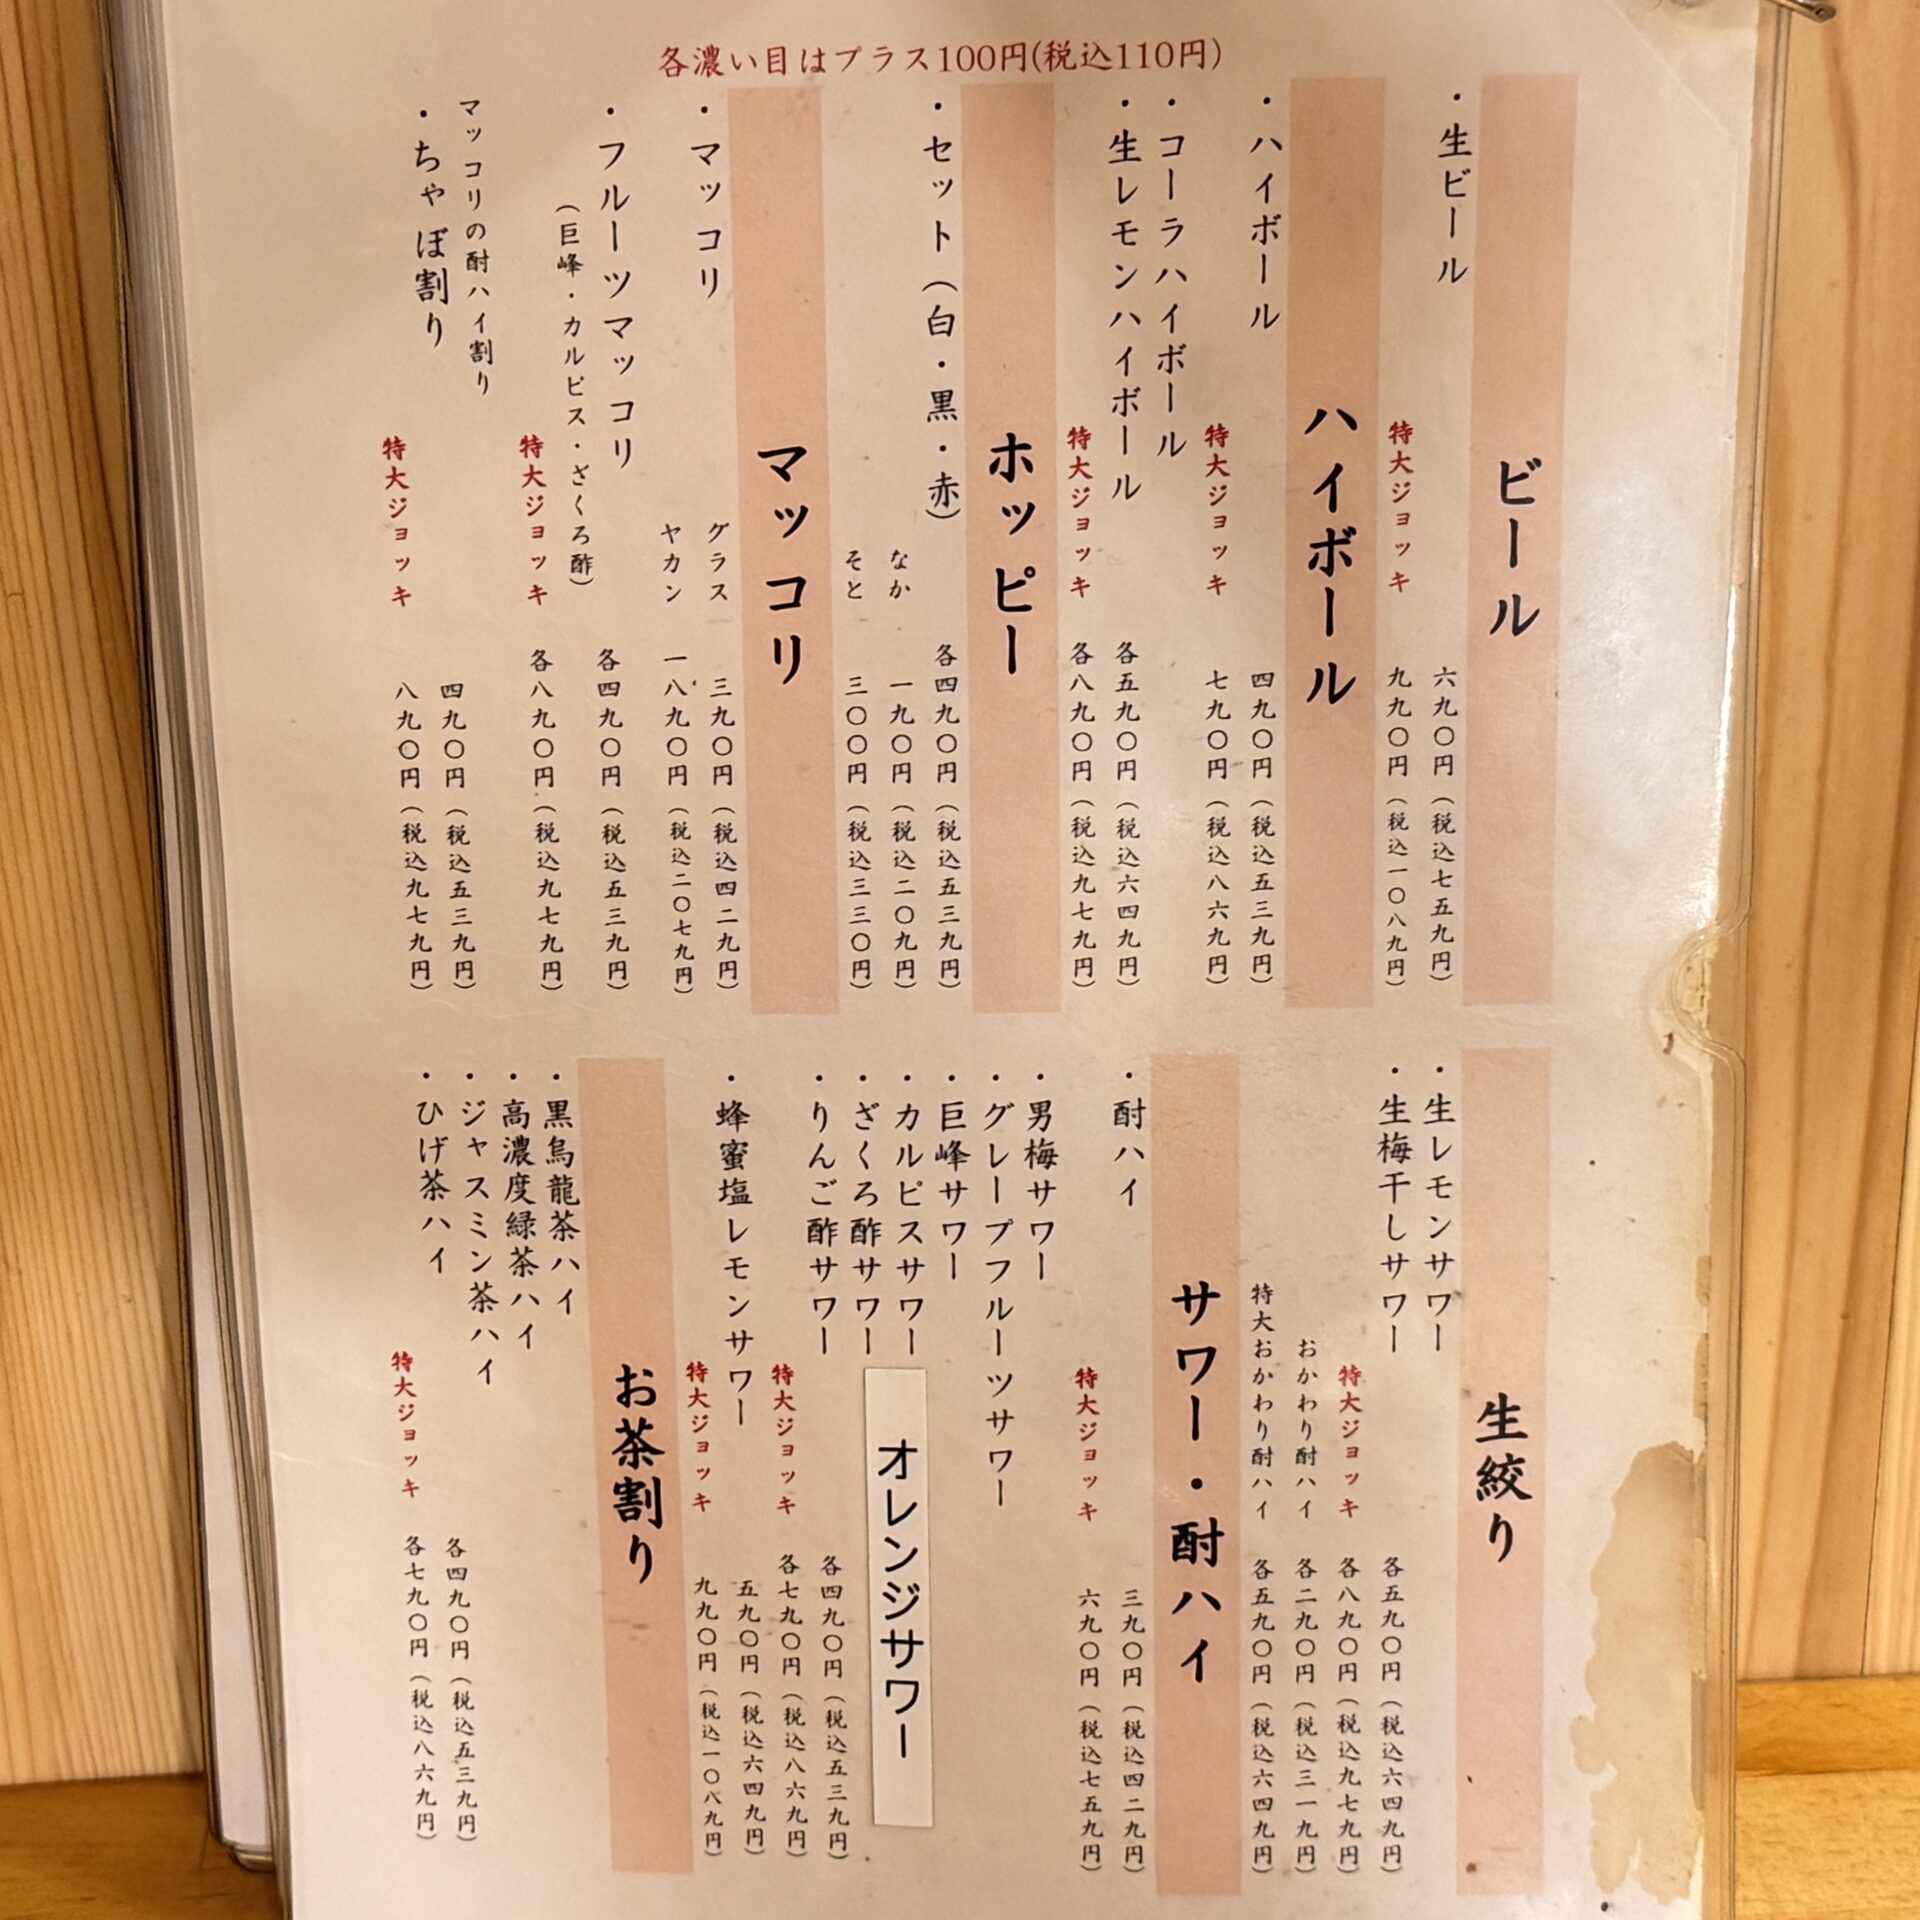 各濃い目はプラス100円(税込110円)
ビール
・生ビール
六九〇円(税込七五九円)
特大ジョッキ
九九〇円(税込一〇八九円)
ハイボール
・ハイボール
四九〇円(税込五三九円)
特大ジョッキ
七九〇円(税込八六九円)
・コーラハイボール
・生レモンハイボール
各五九〇円(税込六四九円)
特大ジョッキ
各八九〇円(税込九七九円)
ホッピー
・セット(白・黒・赤)
各四九〇円(税込五三九円)
なか
一九〇円(税込二〇九円)
そと
三〇〇円(税込三三〇円)
マッコリ
・マッコリ
グラス
三九〇円(税込四二九円)
ヤカン
一八九〇円(税込二〇七九円)
・フルーツマッコリ
各四九〇円(税込五三九円)
(巨峰・カルピス・ざくろ酢)
特大ジョッキ
各八九〇円(税込九七九円)
マッコリの酎ハイ割り
・ちゃぼ割り
四九〇円(税込五三九円)
特大ジョッキ
八九〇円(税込九七九円)
生絞り
・生レモンサワー
・生梅干しサワー
各五九〇円(税込六四九円)
特大ジョッキ
各八九〇円(税込九七九円)
おかわり酎ハイ
各二九〇円(税込三一九円)
特大おかわり酎ハイ
各五九〇円(税込六四九円)
サワー・酎ハイ
・酎ハイ
三九〇円(税込四二九円)
特大ジョッキ
六九〇円(税込七五九円)
・男梅サワー
・グレープフルーツサワー
・巨峰サワー
・カルピスサワー
オレンジサワー
・ざくろ酢サワー
・りんご酢サワー
各四九〇円(税込五三九円)
特大ジョッキ
各七九〇円(税込八六九円)
・蜂蜜塩レモンサワー
五九〇円(税込六四九円)
特大ジョッキ
九九〇円(税込一〇八九円)
お茶割り
・黒烏龍茶ハイ
・高濃度緑茶ハイ
・ジャスミン茶ハイ
・ひげ茶ハイ
各四九〇円(税込五三九円)
特大ジョッキ
各七九〇円(税込八六九円)